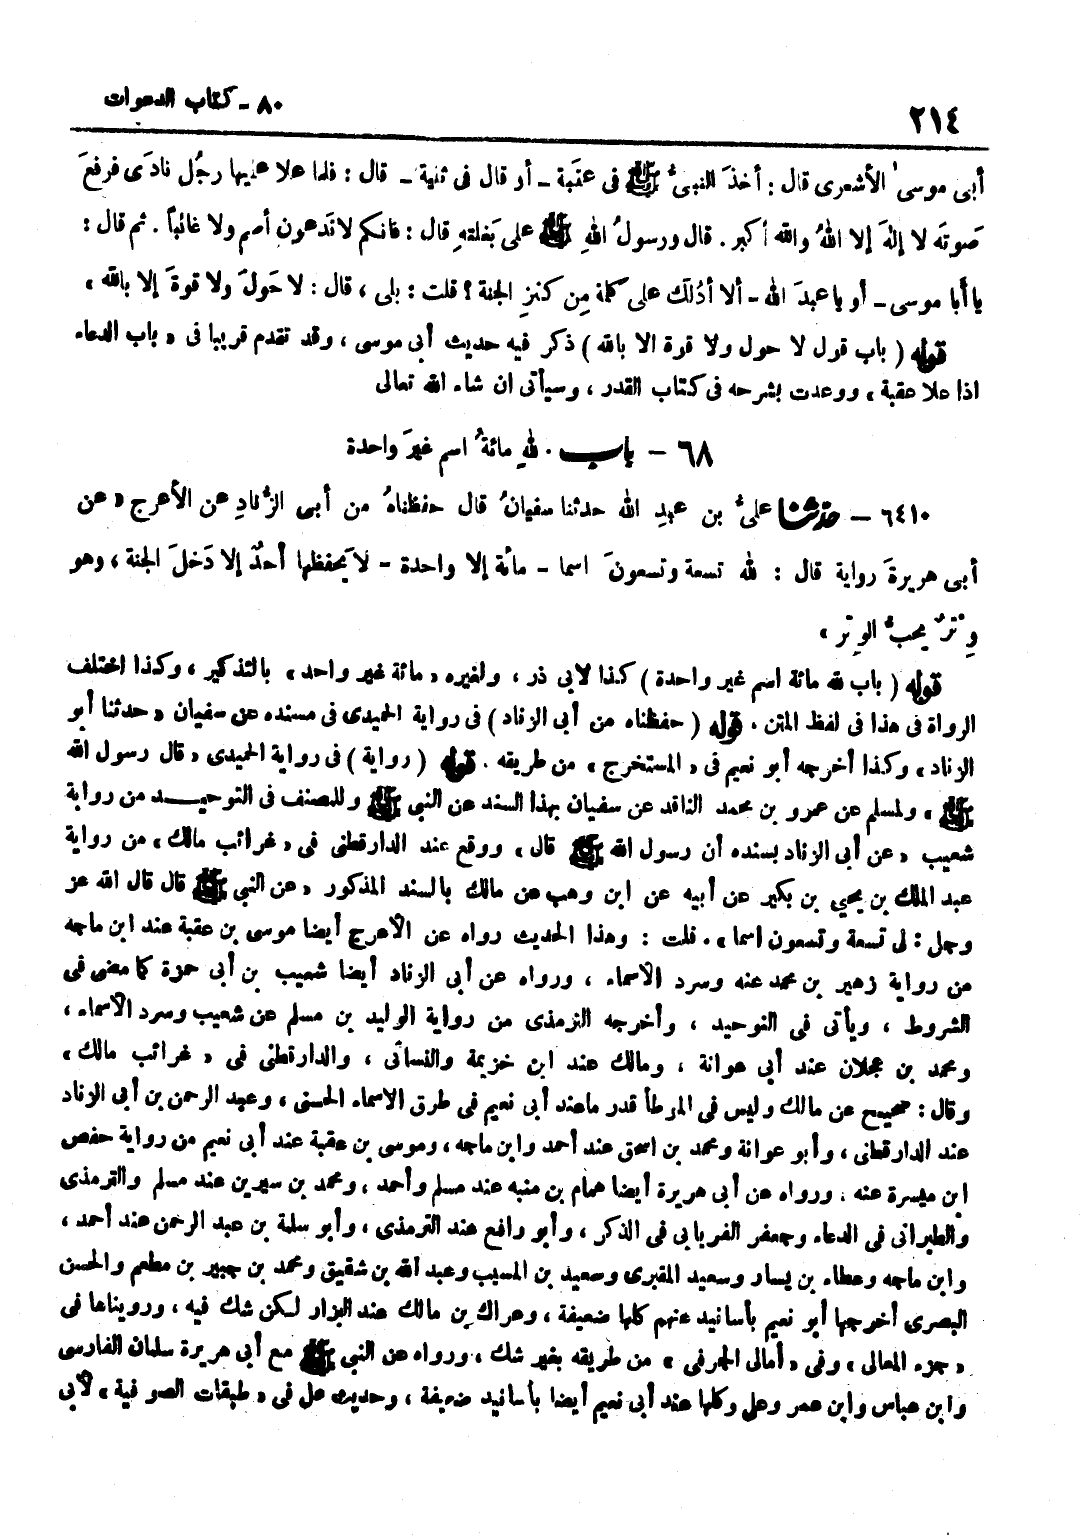 ٢١٤
٨٠ - كتاب الدعوات
أبى موسىٰ الأشعرى قال : أخذَ النبىُّ ﷺ فى عقبَة - أو قال فى ثنية - قال : فلما علا عليها رجُل نادَى فرفعَ
صَوتَه لا إلهَ إلا اللهُ والله أكبر . قال ورسولُ اللهِ ﷺ على بَغلتهِ قال : فانكم لاتَدعون أصم ولا غائباً . ثم قال :
يا أبا موسى - أو يا عبدَ الله - ألا أدُلّك على كلمة مِن كنزِ الجنة ؟ قلت : بلى ، قال : لا حَولَ ولا قوةَ إلا بالله »
قوله ( باب قول لا حول ولا قوة الا بالله ) ذكر فيه حديث أبى موسى ، وقد تقدم قريبا فى « باب الدعاء
اذا علا عقبة » ووعدت بشرحه فى كتاب القدر ، وسيأتى ان شاء الله تعالى
٦٨ - باب . للهِ مائةُ اسم غيرَ واحدة
٦٤١٠ - حدثنا علىُّ بن عبدِ الله حدثنا سفيانُ قال حفظناهُ من أبى الزِّنادِ عن الأعرج « عن
أبى هريرةَ رواية قال : لله تسعة وتسعونَ اسما - مائة إلا واحدة - لا يَحفظها أحدٌ إلا دَخلَ الجنة ، وهو
وِترٌ يحبُّ الوِتر »
قوله ( باب لله مائة اسم غير واحدة ) كذا لابى ذر ، ولغيره « مائة غير واحد » بالتذكير ، وكذا اختلف
الرواة فى هذا فى لفظ المتن . قوله ( حفظناه من أبى الزناد ) فى رواية الحميدى فى مسنده عن سفيان « حدثنا أبو
الزناد » وكذا أخرجه أبو نعيم فى « المستخرج » من طريقه . قوله ( رواية ) فى رواية الحميدى « قال رسول الله
ﷺ » ولمسلم عن عمرو بن محمد الناقد عن سفيان بهذا السند عن النبي ﷺ وللمصنف فى التوحيد من رواية
شعيب « عن أبى الزناد بسنده أن رسول الله ﷺ قال » ووقع عند الدارقطنى فى « غرائب مالك » من رواية
عبد الملك بن يحيى بن بكير عن أبيه عن ابن وهب عن مالك بالسند المذكور « عن النبى ﷺ قال قال الله عز
وجل : لى تسعة وتسعون اسما » . قلت : وهذا الحديث رواه عن الأعرج أيضا موسى بن عقبة عند ابن ماجه
من رواية زهير بن محمد عنه وسرد الأسماء ، ورواه عن أبى الزناد أيضا شعيب بن أبى حمزة كما مضى فى
الشروط ، ويأتى فى التوحيد ، وأخرجه الترمذى من رواية الوليد بن مسلم عن شعيب وسرد الأسماء ،
ومحمد بن عجلان عند أبى عوانة ، ومالك عند ابن خزيمة والنسائى ، والدارقطنى فى « غرائب مالك »
وقال : صحيح عن مالك وليس فى الموطأ قدر ماعند أبى نعيم فى طرق الاسماء الحسنى ، وعبد الرحمن بن أبى الزناد
عند الدارقطنى ، وأبو عوانة ومحمد بن اسحق عند أحمد وابن ماجه ، وموسى بن عقبة عند أبى نعيم من رواية حفص
ابن ميسرة عنه . ورواه عن أبى هريرة أيضا همام بن منبه عند مسلم وأحمد ، ومحمد بن سيرين عند مسلم والترمذى
والطبرانى فى الدعاء وجعفر الفريابى فى الذكر ، وأبو رافع عند الترمذى ، وأبو سلمة بن عبد الرحمن عند أحمد ،
وابن ماجه وعطاء بن يسار وسعيد المقبرى وسعيد بن المسيب وعبد الله بن شقيق ومحمد بن جبير بن مطعم والحسن
البصرى أخرجها أبو نعيم بأسانيد عنهم كلها ضعيفة ، وعراك بن مالك عند البزار لكن شك فيه ، ورويناها فى
« جزء المعالى » وفى « أمالى الجرفى » من طريقه بغير شك ، ورواه عن النبى ﷺ مع أبى هريرة سلمان الفارسى
وابن عباس وابن عمر وعلى وكلها عند أبى نعيم أيضا بأسانيد ضعيفة ، وحديث على فى « طبقات الصوفية » لأبى